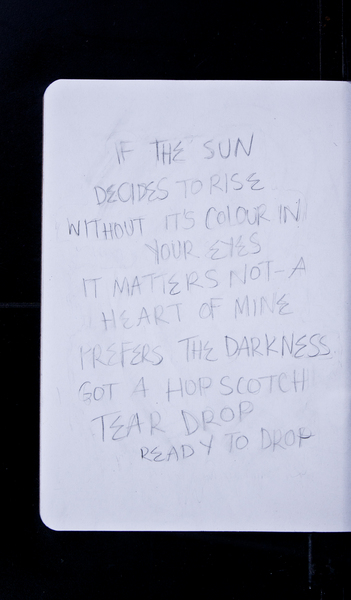 IF THE SUN
DECIDES TO RISE
WITHOUT IT'S COLOUR IN
YOUR EYES
IT MATTERS NOT-A
HEART OF MINE
PREFERS THE DARKNESS
GOT A HOPSCOTCH
TEAR DROP
READY TO DROP